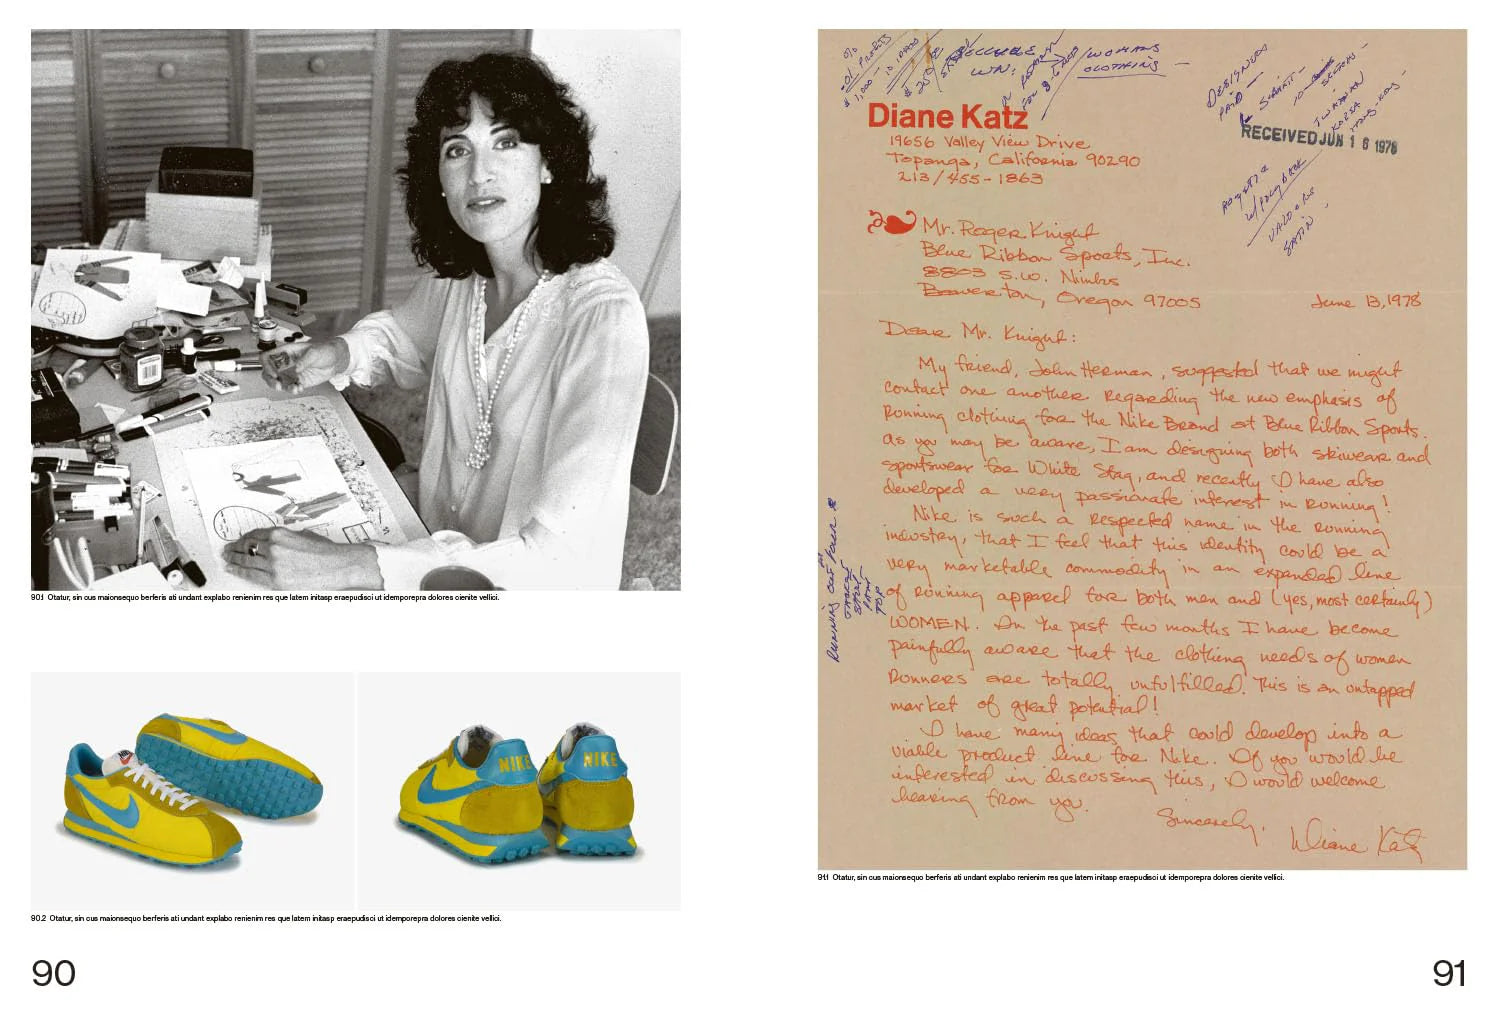 90.1 Otatur, sin cus maionsequo berferis ati undant explabo renienim res que latem initasp eraepudisci ut idemporepra dolores cienite vellici.
NIKE
NIKE
90.2 Otatur, sin cus maionsequo berferis ati undant explabo renienim res que latem initasp eraepudisci ut idemporepra dolores cienite vellici.
90
$1,000 - 10
WOMANS
CLOTHING
WIN:
DESIGNER
PAID
SKETCHES
TAIWAN
KOREA
HONG-KONG
RECEIVED JUN 16 1978
SATIN
Diane Katz
19656 Valley View Drive
Topanga, California 90290
213/455-1863
Mr. Roger Knight
Blue Ribbon Sports, Inc.
8803 S.W. Nimbs
Beaverton, Oregon 97005
June 13, 1978
Dear Mr. Knight:
My friend, John Herman, suggested that we might
contact one another regarding the new emphasis of
running clothing for the Nike Brand at Blue Ribbon Sports.
As you may be aware, I am designing both skiwear and
sportswear for White Stag, and recently I have also
developed a very passionate interest in running!
Nike is such a respected name in the running
industry, that I feel that this identity could be a
very marketable commodity in an expanded line
of running apparel for both men and (yes, most certainly)
WOMEN. In the past few months I have become
painfully aware that the clothing needs of women
runners are totally unfulfilled. This is an untapped
market of great potential!
I have many ideas that could develop into a
viable product line for Nike. If you would be
interested in discussing this, I would welcome
hearing from you.
Sincerely,
Diane Katz
RUNNING OUT
SHORT
PANT
TOP
91.1 Otatur, sin cus maionsequo berferis ati undant explabo renienim res que latem initasp eraepudisci ut idemporepra dolores cienite vellici.
91